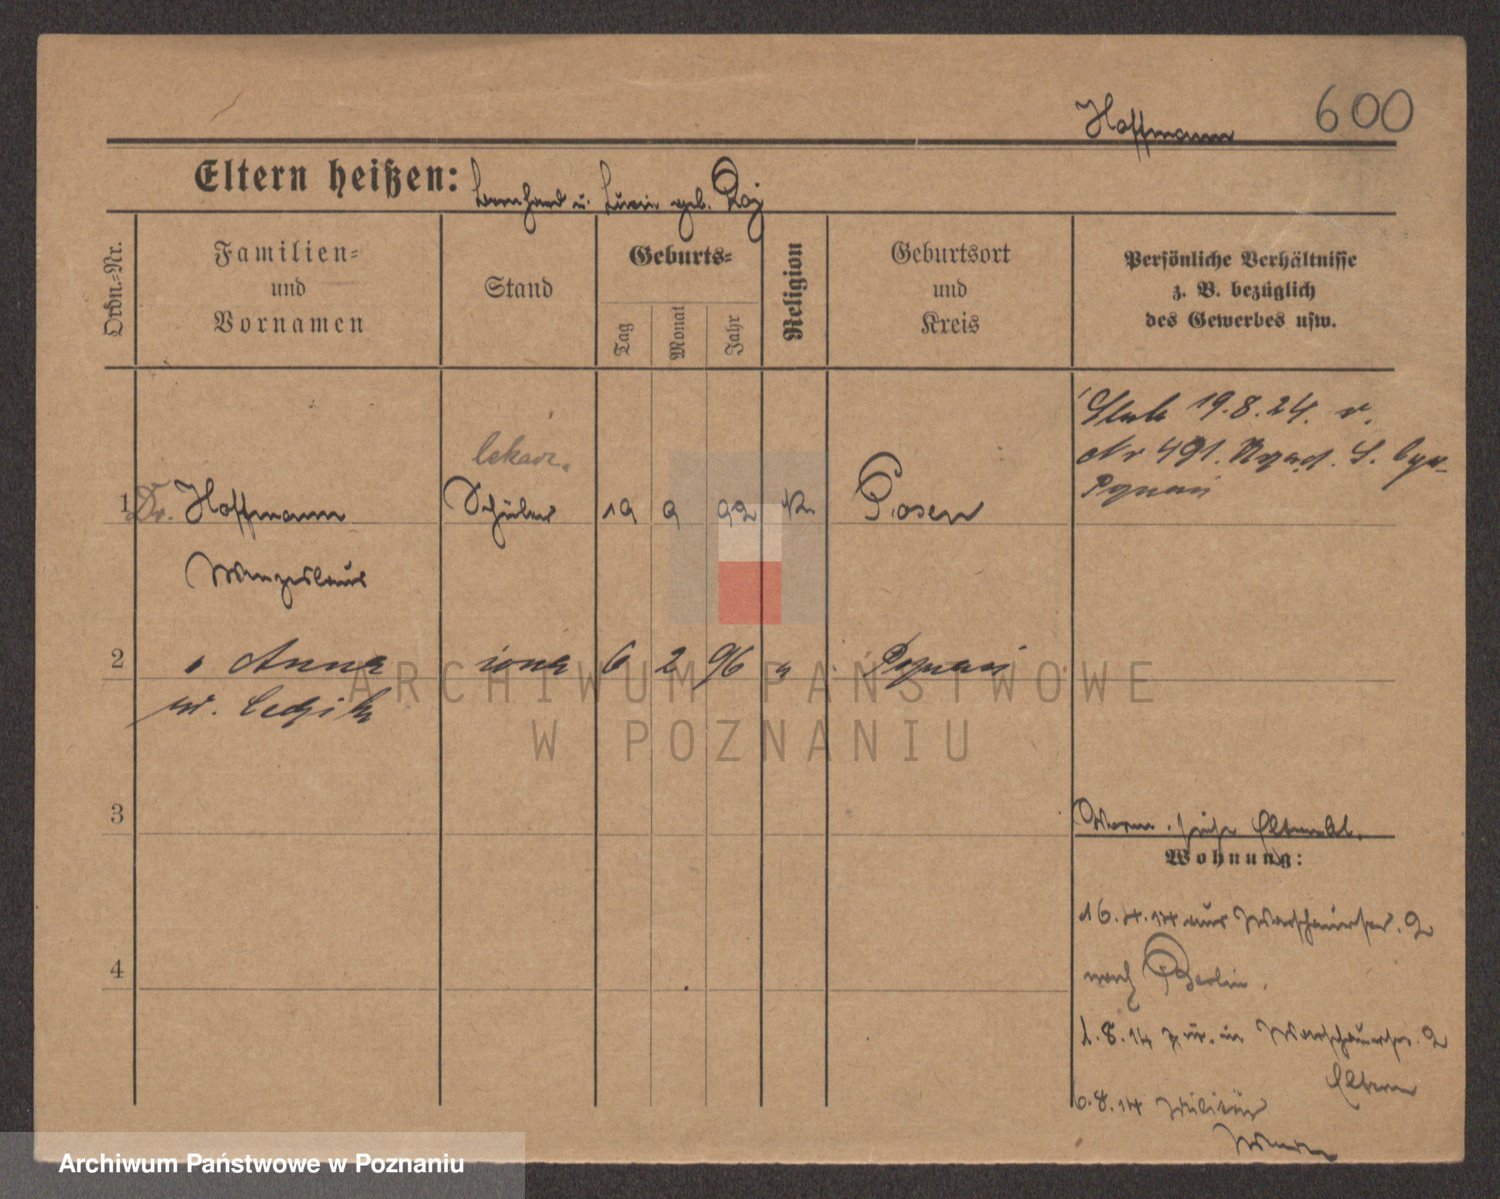 Hoffmann 600
Eltern heißen: Bernhard u. geb. Roj
Ordn.-Nr.
Familien-
und
Vornamen
Stand
Geburts-
Tag
Monat
Jahr
Religion
Geburtsort
und
Kreis
Persönliche Verhältnisse
z. B. bezüglich
des Gewerbes usw.
Ślub 19.8.24. r.
Nr 491. Urząd. S. Cyw.
Poznań
lekarz.
1 Dr. Hoffmann Schüler 19 9 92 K. Posen
Wenzeslaus
2 " Anna żona 6 2 96 " Poznań
ur.
3
4
Wohnung:
16.4.14 aus Warschauerstr. 2
nach Berlin.
1.8.14 zur. in Warschauerstr. 2
Eltern
6.8.14 Militär
ARCHIWUM PAŃSTWOWE
W POZNANIU
Archiwum Państwowe w Poznaniu